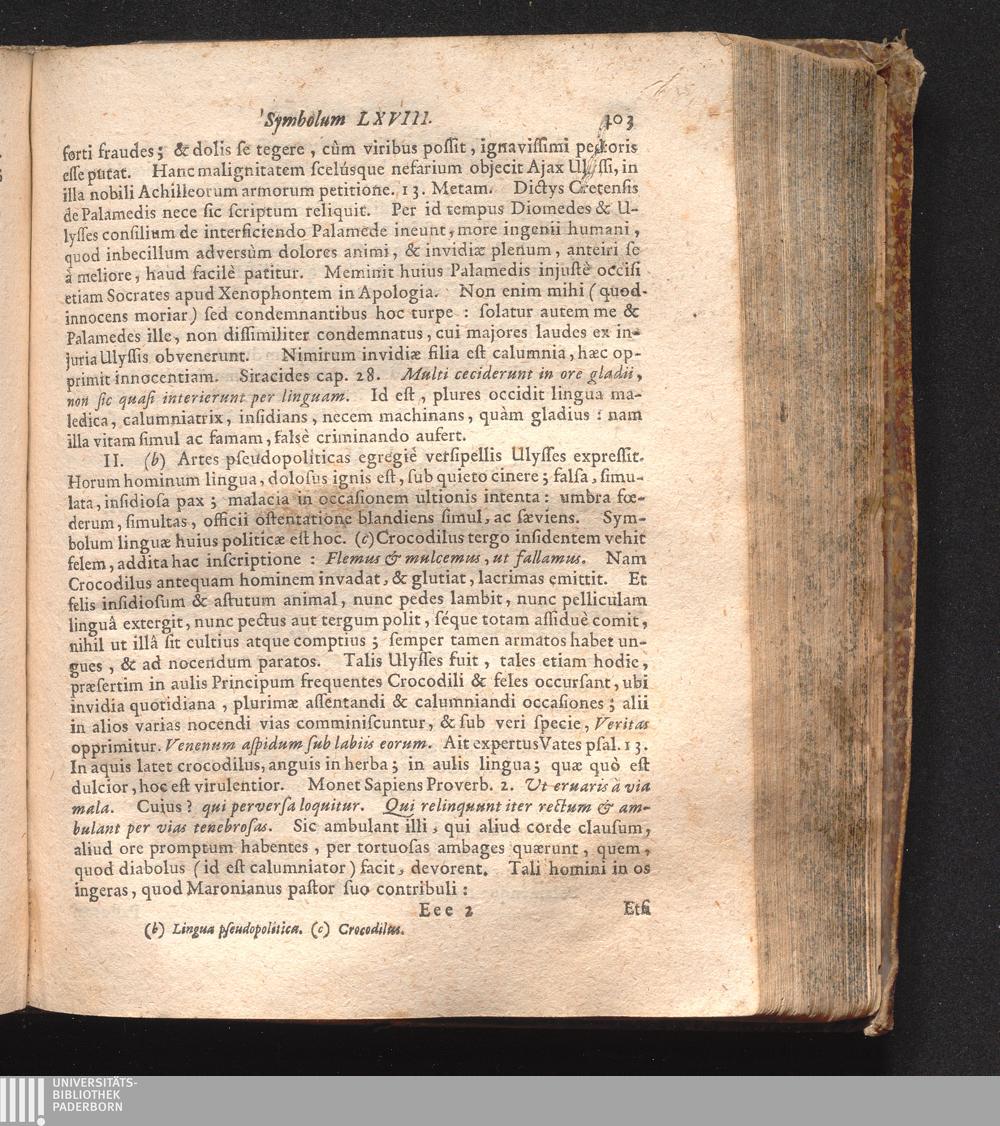 Symbolum LXVIII. 403
forti fraudes; & dolis ſe tegere, cùm viribus poſſit, ignaviſſimi pectoris
eſſe putat. Hanc malignitatem ſcelúsque nefarium objecit Ajax Ulyſſi, in
illa nobili Achilleorum armorum petitione. 13. Metam. Dictys Cretenſis
de Palamedis nece ſic ſcriptum reliquit. Per id tempus Diomedes & U-
lyſſes conſilium de interficiendo Palamede ineunt, more ingenii humani,
quod inbecillum adversùm dolores animi, & invidiæ plenum, anteiri ſe
à meliore, haud facilè patitur. Meminit huius Palamedis injuſtè occiſi
etiam Socrates apud Xenophontem in Apologia. Non enim mihi (quod
innocens moriar) ſed condemnantibus hoc turpe: ſolatur autem me &
Palamedes ille, non diſſimiliter condemnatus, cui majores laudes ex in-
juria Ulyſſis obvenerunt. Nimirum invidiæ filia eſt calumnia, hæc op-
primit innocentiam. Siracides cap. 28. Multi ceciderunt in ore gladii,
non ſic quaſi interierunt per linguam. Id eſt, plures occidit lingua ma-
ledica, calumniatrix, inſidians, necem machinans, quàm gladius: nam
illa vitam ſimul ac famam, falsè criminando aufert.
II. (b) Artes pſeudopoliticas egregiè verſipellis Ulyſſes expreſſit.
Horum hominum lingua, doloſus ignis eſt, ſub quieto cinere; falſa, ſimu-
lata, inſidioſa pax; malacia in occaſionem ultionis intenta: umbra fœ-
derum, ſimultas, officii oſtentatione blandiens ſimul, ac ſæviens. Sym-
bolum linguæ huius politicæ eſt hoc. (c) Crocodilus tergo inſidentem vehit
felem, addita hac inſcriptione: Flemus & mulcemus, ut fallamus. Nam
Crocodilus antequam hominem invadat, & glutiat, lacrimas emittit. Et
felis inſidioſum & aſtutum animal, nunc pedes lambit, nunc pelliculam
linguâ extergit, nunc pectus aut tergum polit, ſéque totam aſſiduè comit,
nihil ut illâ ſit cultius atque comptius; ſemper tamen armatos habet un-
gues, & ad nocendum paratos. Talis Ulyſſes fuit, tales etiam hodie,
præſertim in aulis Principum frequentes Crocodili & feles occurſant, ubi
invidia quotidiana, plurimæ aſſentandi & calumniandi occaſiones; alii
in alios varias nocendi vias comminiſcuntur, & ſub veri ſpecie, Veritas
opprimitur. Venenum aſpidum ſub labiis eorum. Ait expertus Vates pſal. 13.
In aquis latet crocodilus, anguis in herba; in aulis lingua; quæ quò eſt
dulcior, hoc eſt virulentior. Monet Sapiens Proverb. 2. Ut eruaris à via
mala. Cuius? qui perverſa loquitur. Qui relinquunt iter rectum & am-
bulant per vias tenebroſas. Sic ambulant illi, qui aliud corde clauſum,
aliud ore promptum habentes, per tortuoſas ambages quærunt, quem,
quod diabolus (id eſt calumniator) facit, devorent. Tali homini in os
ingeras, quod Maronianus paſtor ſuo contribuli:
Eee 2 Etſi
(b) Lingua pſeudopolitica. (c) Crocodilus.
UNIVERSITÄTS-
BIBLIOTHEK
PADERBORN